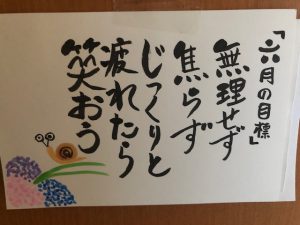 「六月の目標」
無理せず
焦らず
じっくりと
疲れたら
笑おう